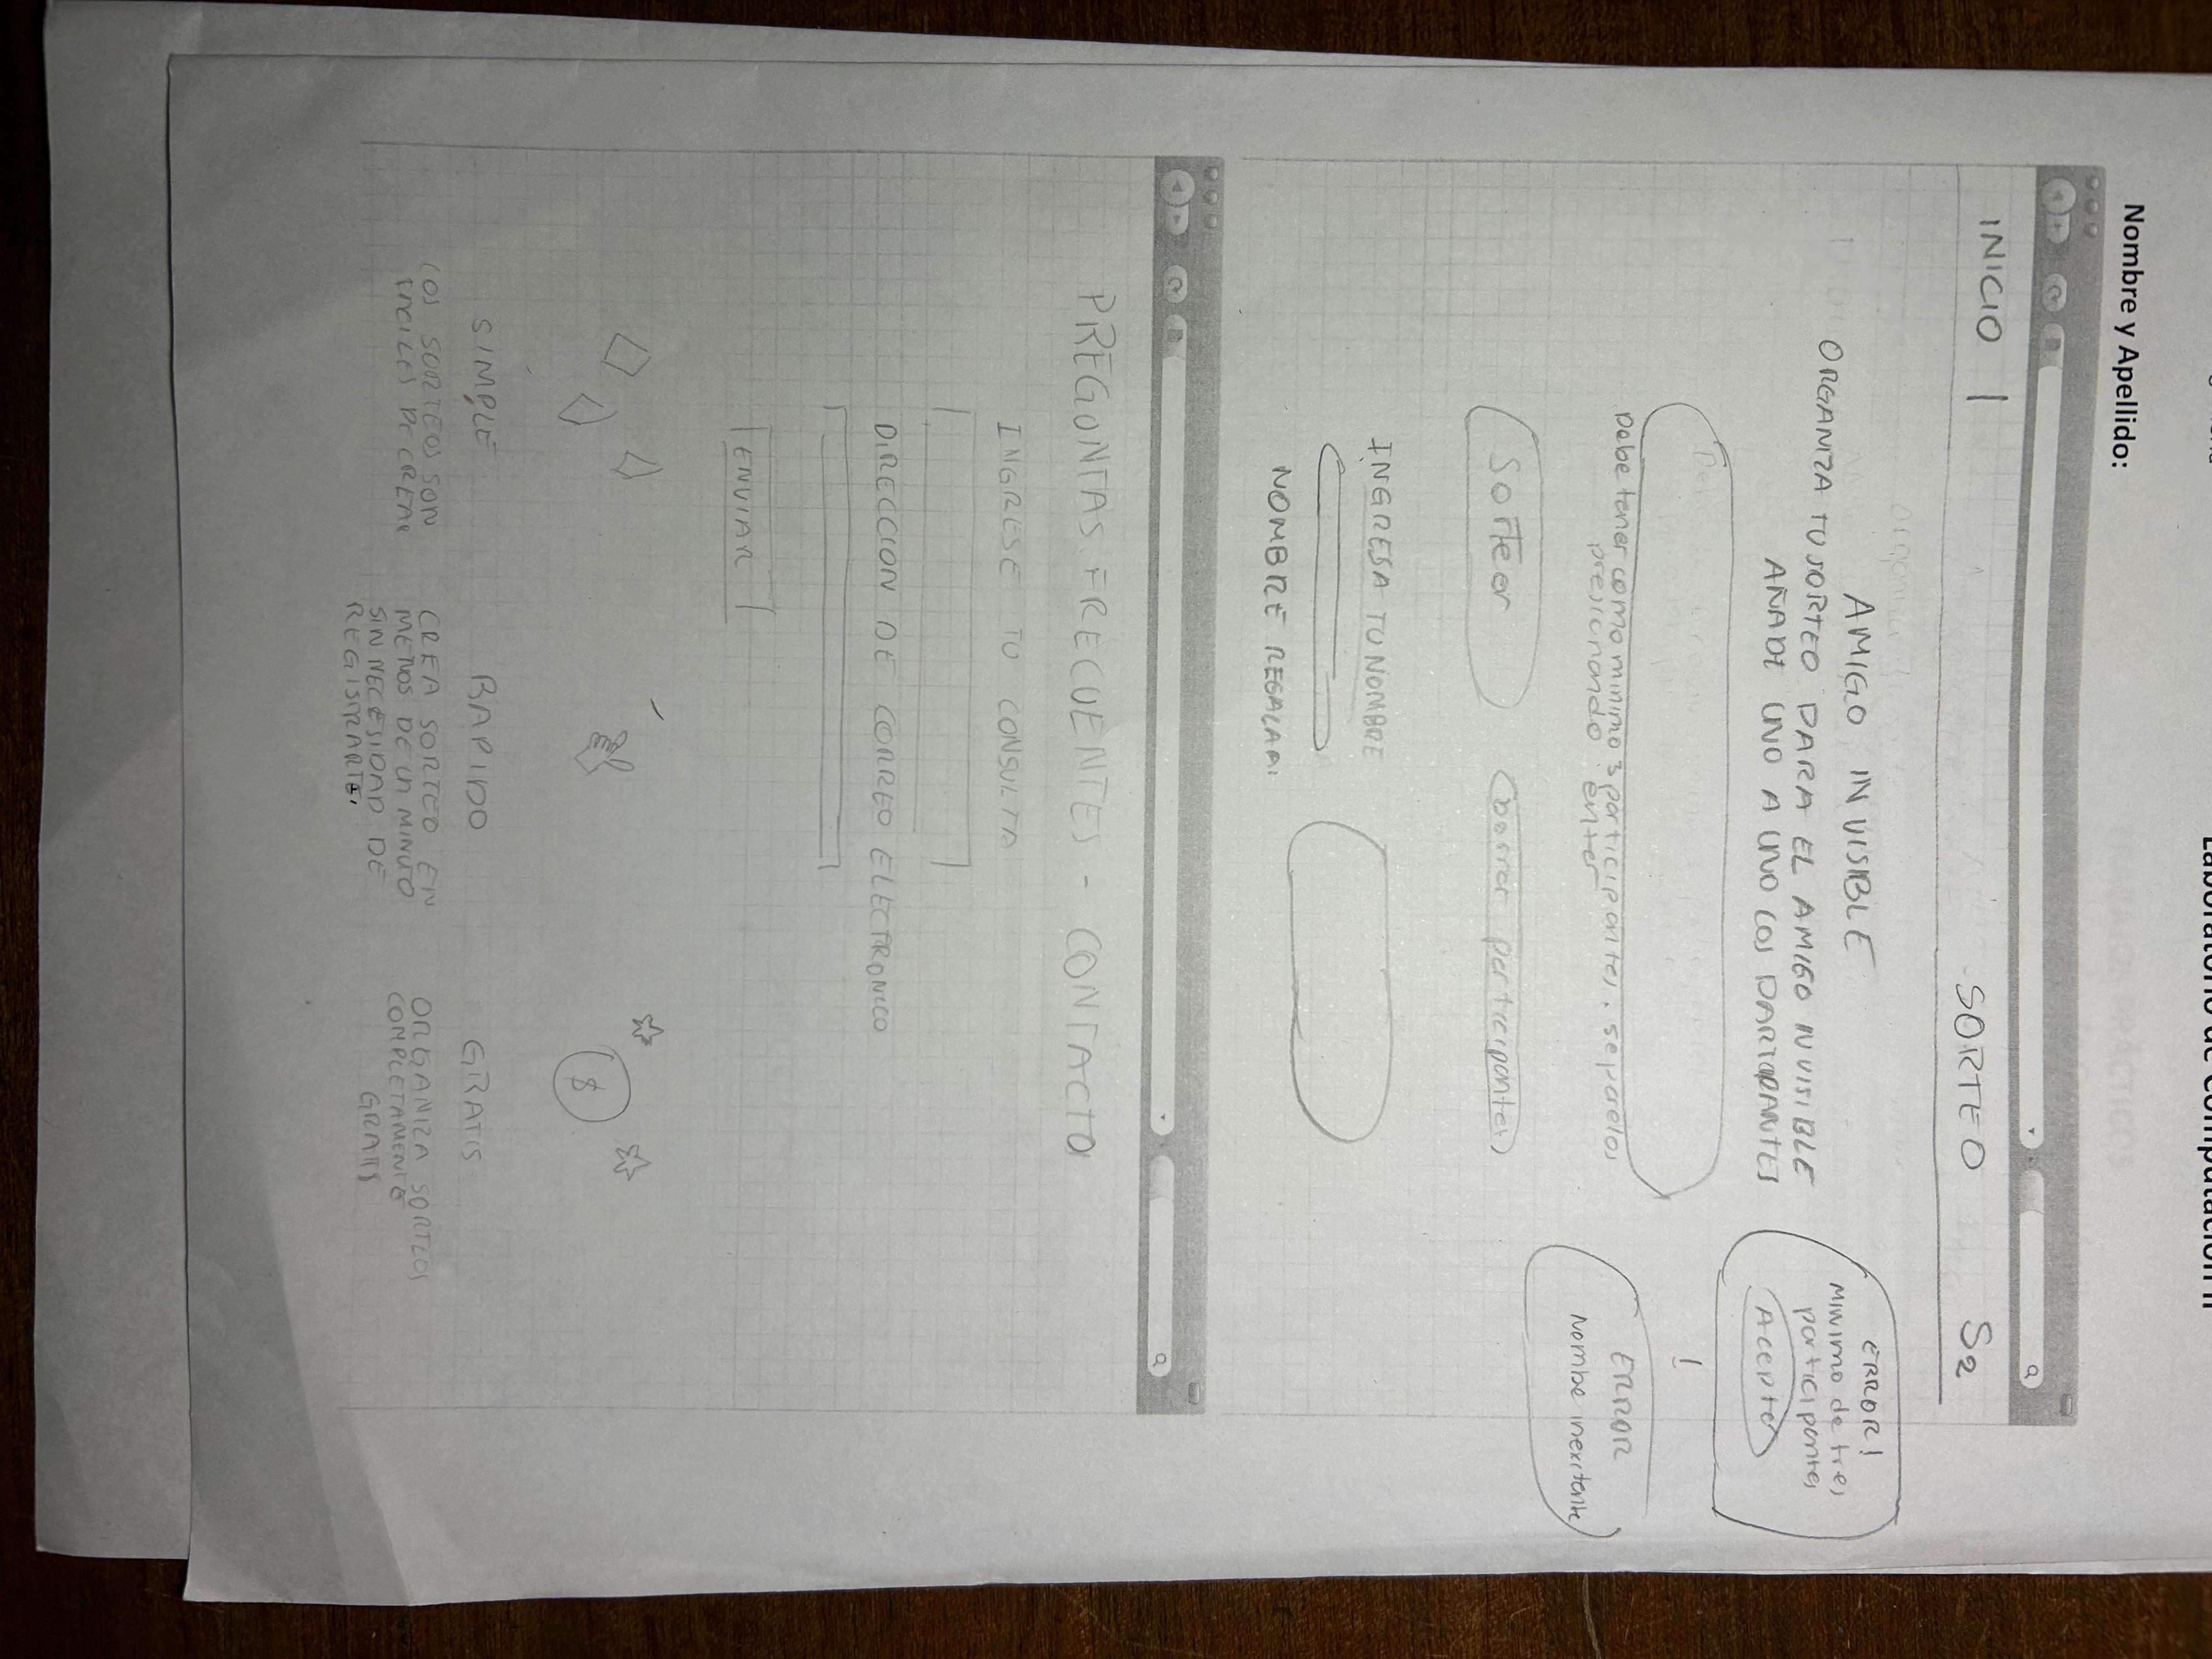 Laboratorio de Computación II
Nombre y Apellido:
INICIO | SORTEO S2
AMIGO INVISIBLE
ORGANIZA TU SORTEO PARA EL AMIGO INVISIBLE
AÑADE UNO A UNO LOS PARTICIPANTES
Debe tener como minimo 3 participantes. separelos
presionando enter
Sorteor
borrar participantes
INGRESA TU NOMBRE
NOMBRE REGALAR:
ERROR!
MINIMO de tres
participantes
Aceptar
!
ERROR
Nombe inexitente
PREGONTAS FRECUENTES - CONTACTO
INGRESE TU CONSULTA
DIRECCION DE CORREO ELECTRONICO
ENVIAR
$
SIMPLE
LOS SORTEOS SON
FACILES DE CREAR
RAPIDO
CREA SORTEO EN
MENOS DE UN MINUTO
SIN NECESIDAD DE
REGISTRARTE.
GRATIS
ORGANIZA SORTEOS
COMPLETAMENTE
GRATIS